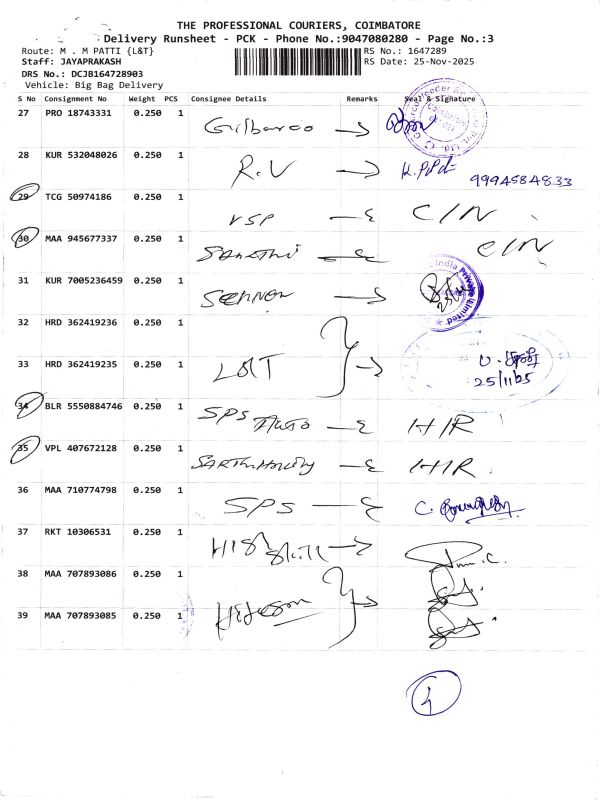 THE PROFESSIONAL COURIERS, COIMBATORE
Delivery Runsheet - PCK - Phone No.:9047080280 - Page No.:3
Route: M . M PATTI {L&T} RS No.: 1647289
Staff: JAYAPRAKASH RS Date: 25-Nov-2025
DRS No.: DCJB164728903
Vehicle: Big Bag Delivery
S No Consignment No Weight PCS Consignee Details Remarks Seal & Signature
27 PRO 18743331 0.250 1 Gilbarco
28 KUR 532048026 0.250 1 R.V 9994584833
29 TCG 50974186 0.250 1 VSP C/N
30 MAA 945677337 0.250 1 C/N
31 KUR 7005236459 0.250 1
India Private Limited
32 HRD 362419236 0.250 1
33 HRD 362419235 0.250 1 L&T
25/11/25
34 BLR 5550884746 0.250 1 SPS Auto HIR
35 VPL 407672128 0.250 1 HIR
36 MAA 710774798 0.250 1 SPS
37 RKT 10306531 0.250 1
38 MAA 707893086 0.250 1
39 MAA 707893085 0.250 1